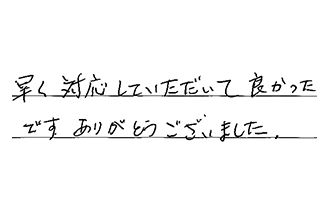 早く対応していただいて良かった
です ありがとうございました.